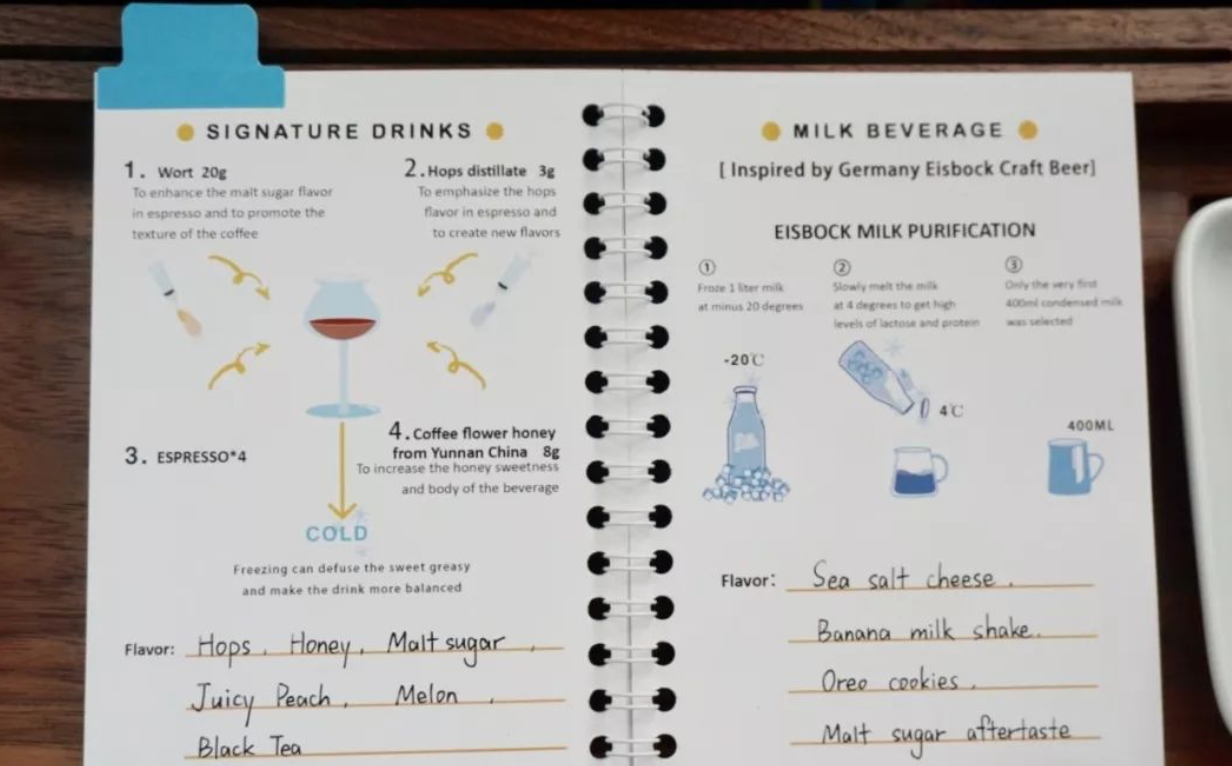 SIGNATURE DRINKS
1. Wort 20g
To enhance the malt sugar flavor
in espresso and to promote the
texture of the coffee
2. Hops distillate 3g
To emphasize the hops
flavor in espresso and
to create new flavors
3. ESPRESSO*4
4. Coffee flower honey
from Yunnan China 8g
To increase the honey sweetness
and body of the beverage
COLD
Freezing can defuse the sweet greasy
and make the drink more balanced
Flavor: Hops, Honey, Malt sugar,
Juicy Peach, Melon,
Black Tea
MILK BEVERAGE
[ Inspired by Germany Eisbock Craft Beer]
EISBOCK MILK PURIFICATION
①
Froze 1 liter milk
at minus 20 degrees
-20℃
②
Slowly melt the milk
at 4 degrees to get high
levels of lactose and protein
4℃
③
Only the very first
400ml condensed milk
was selected
400ML
Flavor: Sea salt cheese,
Banana milk shake,
Oreo cookies,
Malt sugar aftertaste